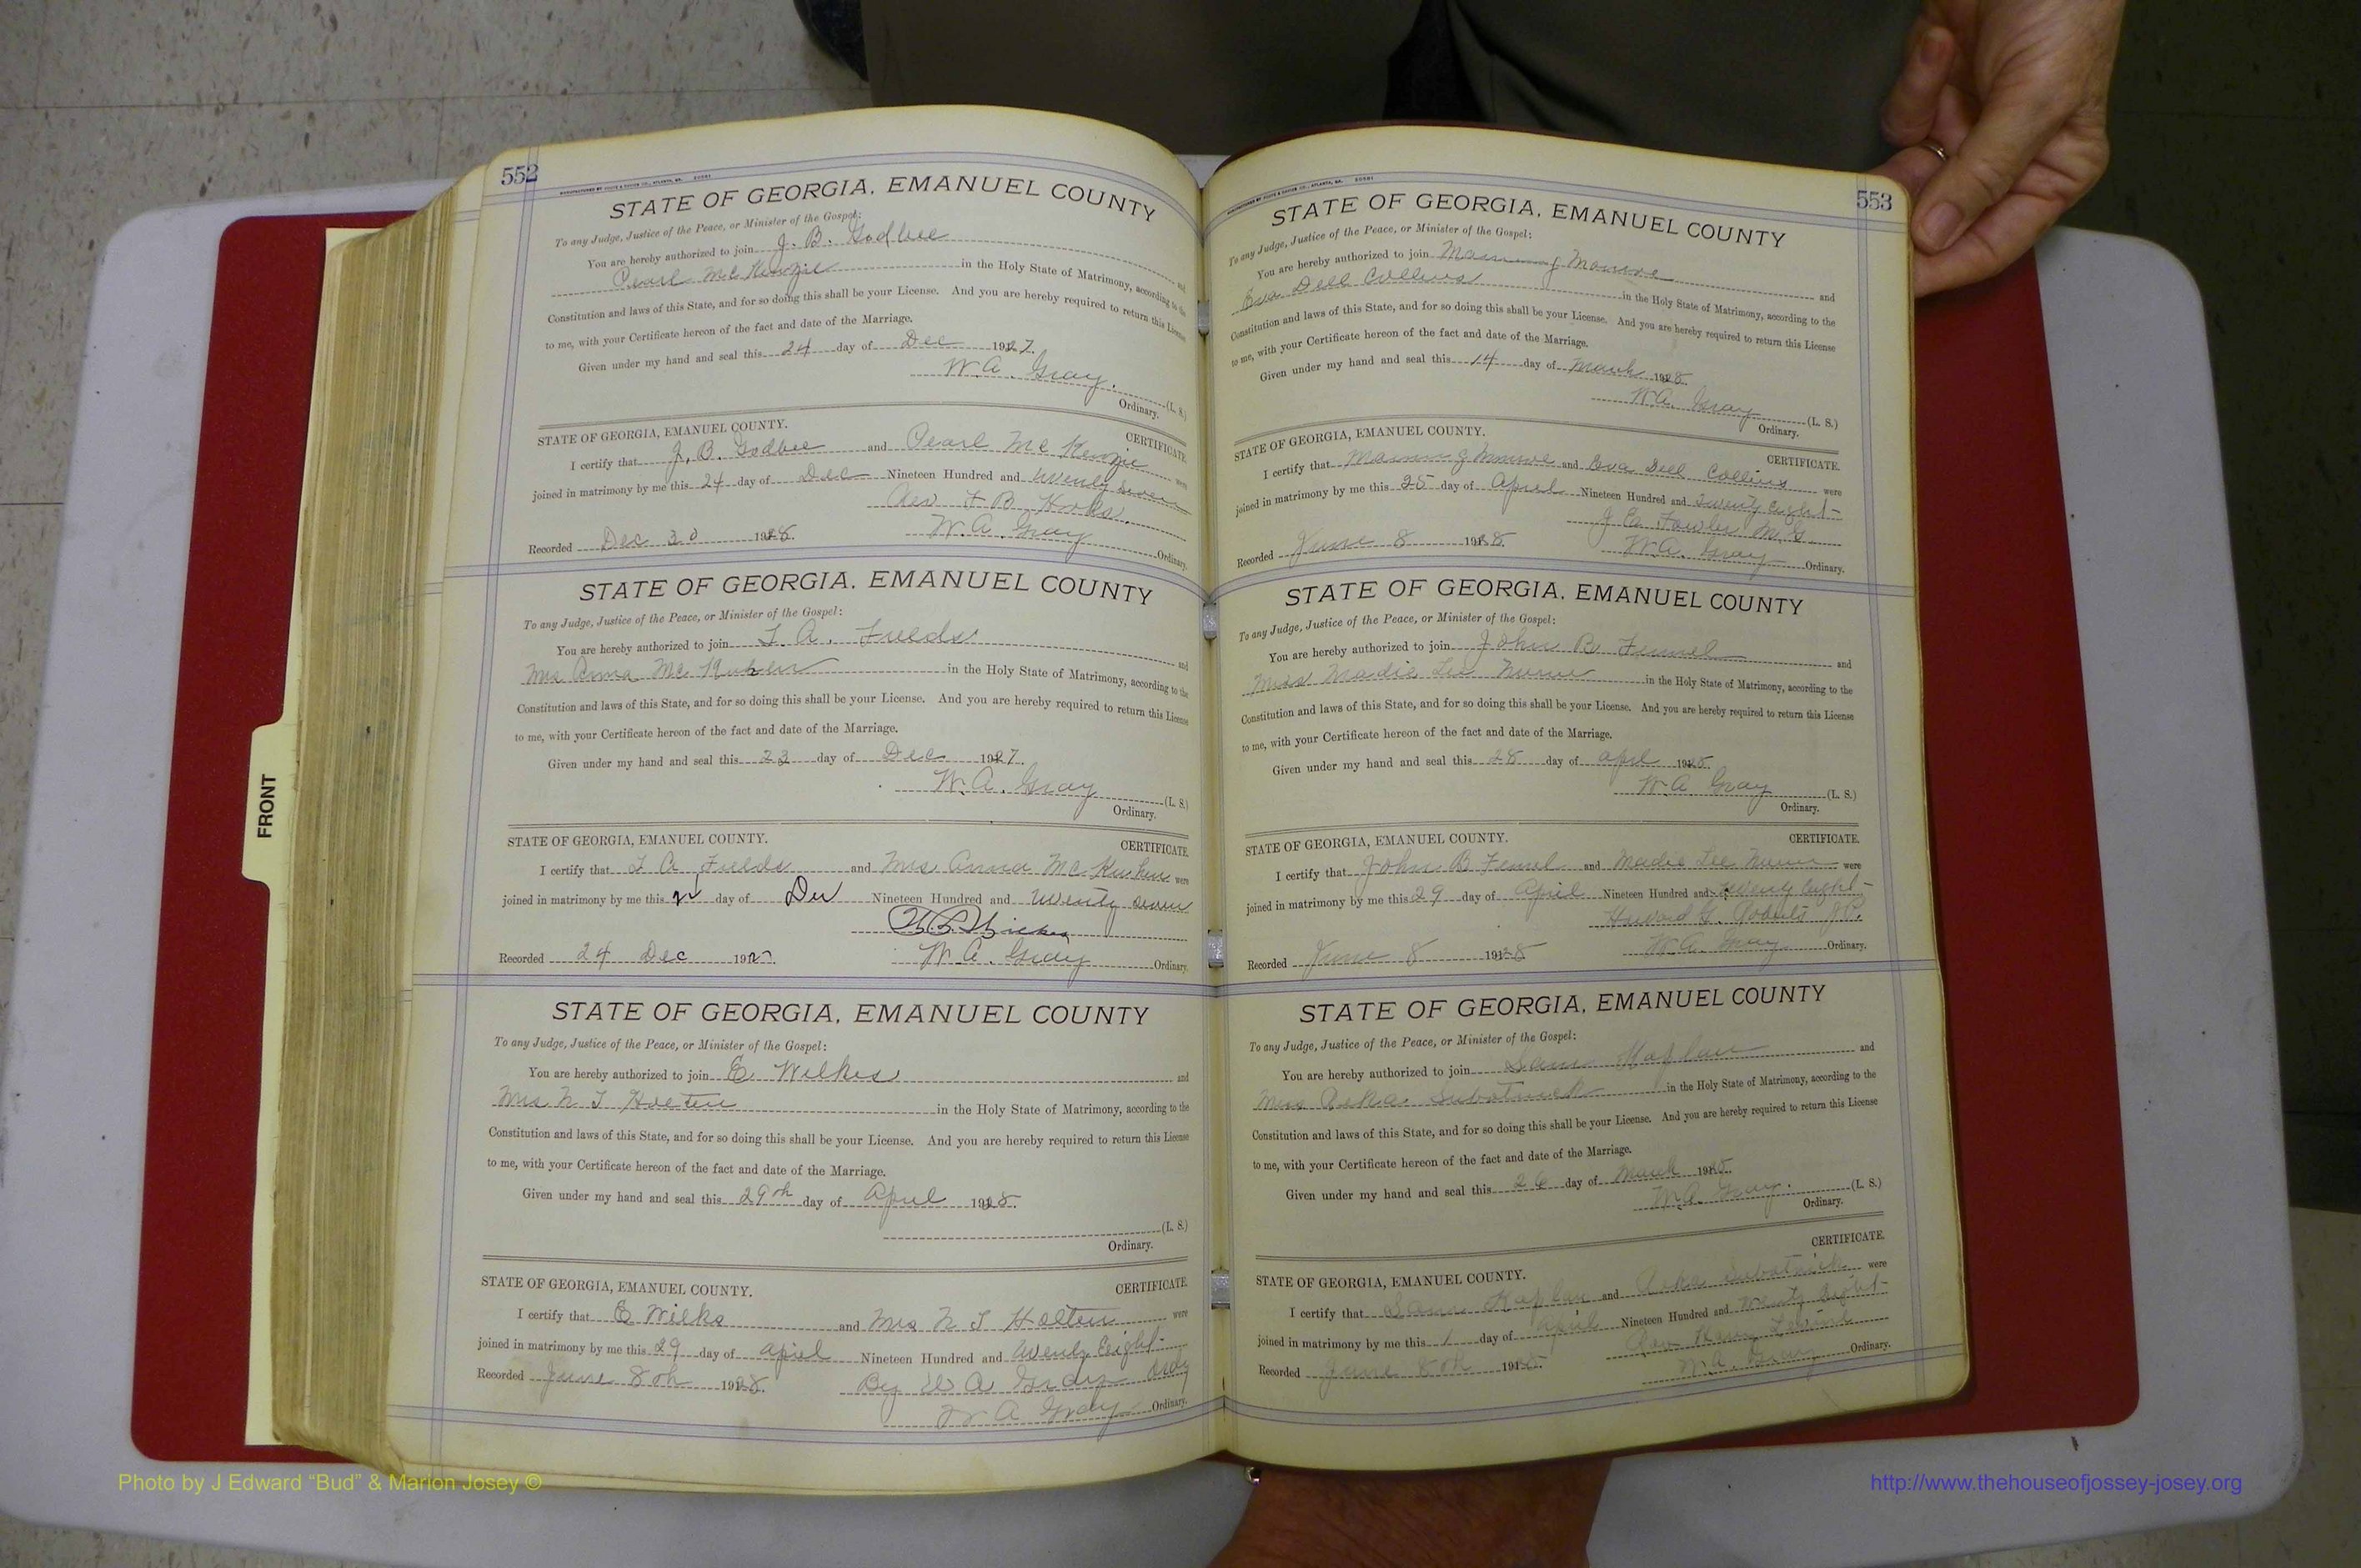 552
STATE OF GEORGIA, EMANUEL COUNTY
To any Judge, Justice of the Peace, or Minister of the Gospel:
You are hereby authorized to join J. B. Godbee and
Pearl McKenzie in the Holy State of Matrimony, according to the
Constitution and laws of this State, and for so doing this shall be your License. And you are hereby required to return this License
to me, with your Certificate hereon of the fact and date of the Marriage.
Given under my hand and seal this 24 day of Dec 1927.
W. A. Gray. (L. S.)
Ordinary.
STATE OF GEORGIA, EMANUEL COUNTY. CERTIFICATE.
I certify that J. B. Godbee and Pearl McKenzie were
joined in matrimony by me this 24 day of Dec Nineteen Hundred and twenty seven
Rev F B
Recorded Dec 30 1928. W. A. Gray Ordinary.
STATE OF GEORGIA, EMANUEL COUNTY
To any Judge, Justice of the Peace, or Minister of the Gospel:
You are hereby authorized to join A. Fields and
Mrs Anna Mc in the Holy State of Matrimony, according to the
Constitution and laws of this State, and for so doing this shall be your License. And you are hereby required to return this License
to me, with your Certificate hereon of the fact and date of the Marriage.
Given under my hand and seal this 23 day of Dec 1927.
W. A. Gray (L. S.)
Ordinary.
STATE OF GEORGIA, EMANUEL COUNTY. CERTIFICATE.
I certify that A Fields and Mrs Anna Mc were
joined in matrimony by me this day of Dec Nineteen Hundred and twenty seven
Recorded 24 Dec 1927 W. A. Gray Ordinary.
STATE OF GEORGIA, EMANUEL COUNTY
To any Judge, Justice of the Peace, or Minister of the Gospel:
You are hereby authorized to join E Wilkes and
Mrs N T Holton in the Holy State of Matrimony, according to the
Constitution and laws of this State, and for so doing this shall be your License. And you are hereby required to return this License
to me, with your Certificate hereon of the fact and date of the Marriage.
Given under my hand and seal this 29th day of April 1928.
(L. S.)
Ordinary.
STATE OF GEORGIA, EMANUEL COUNTY. CERTIFICATE.
I certify that E Wilks and Mrs N T Holton were
joined in matrimony by me this 29 day of April Nineteen Hundred and twenty Eight
By W A Ordy
Recorded June 8th 1928. W A Gray Ordinary.
553
STATE OF GEORGIA, EMANUEL COUNTY
To any Judge, Justice of the Peace, or Minister of the Gospel:
You are hereby authorized to join Manning Monroe and
Eva Dell Collins in the Holy State of Matrimony, according to the
Constitution and laws of this State, and for so doing this shall be your License. And you are hereby required to return this License
to me, with your Certificate hereon of the fact and date of the Marriage.
Given under my hand and seal this 14 day of March 1928.
W. A. Gray (L. S.)
Ordinary.
STATE OF GEORGIA, EMANUEL COUNTY. CERTIFICATE.
I certify that Manning Monroe and Eva Dell Collins were
joined in matrimony by me this 25 day of April Nineteen Hundred and twenty eight
J Ed Fowler M. G.
Recorded June 8 1928. W. A. Gray Ordinary.
STATE OF GEORGIA, EMANUEL COUNTY
To any Judge, Justice of the Peace, or Minister of the Gospel:
You are hereby authorized to join John B Fennel and
Miss Madie Lee in the Holy State of Matrimony, according to the
Constitution and laws of this State, and for so doing this shall be your License. And you are hereby required to return this License
to me, with your Certificate hereon of the fact and date of the Marriage.
Given under my hand and seal this 28 day of April 1928.
W. A. Gray (L. S.)
Ordinary.
STATE OF GEORGIA, EMANUEL COUNTY. CERTIFICATE.
I certify that John B Fennel and Madie Lee were
joined in matrimony by me this 29 day of April Nineteen Hundred and twenty Eight
G. Roberts J.P.
Recorded June 8 1928 W. A. Gray Ordinary.
STATE OF GEORGIA, EMANUEL COUNTY
To any Judge, Justice of the Peace, or Minister of the Gospel:
You are hereby authorized to join Sam Kaplan and
Miss Reka Subotnick in the Holy State of Matrimony, according to the
Constitution and laws of this State, and for so doing this shall be your License. And you are hereby required to return this License
to me, with your Certificate hereon of the fact and date of the Marriage.
Given under my hand and seal this 26 day of March 1928.
W. A. Gray. (L. S.)
Ordinary.
CERTIFICATE.
STATE OF GEORGIA, EMANUEL COUNTY.
I certify that Sam Kaplan and Reka Subotnick were
joined in matrimony by me this 1 day of April Nineteen Hundred and twenty Eight
Rev
Recorded June 8th 1928. W. A. Gray Ordinary.
FRONT
Photo by J Edward “Bud” & Marion Josey ©
http://www.thehouseofjossey-josey.org